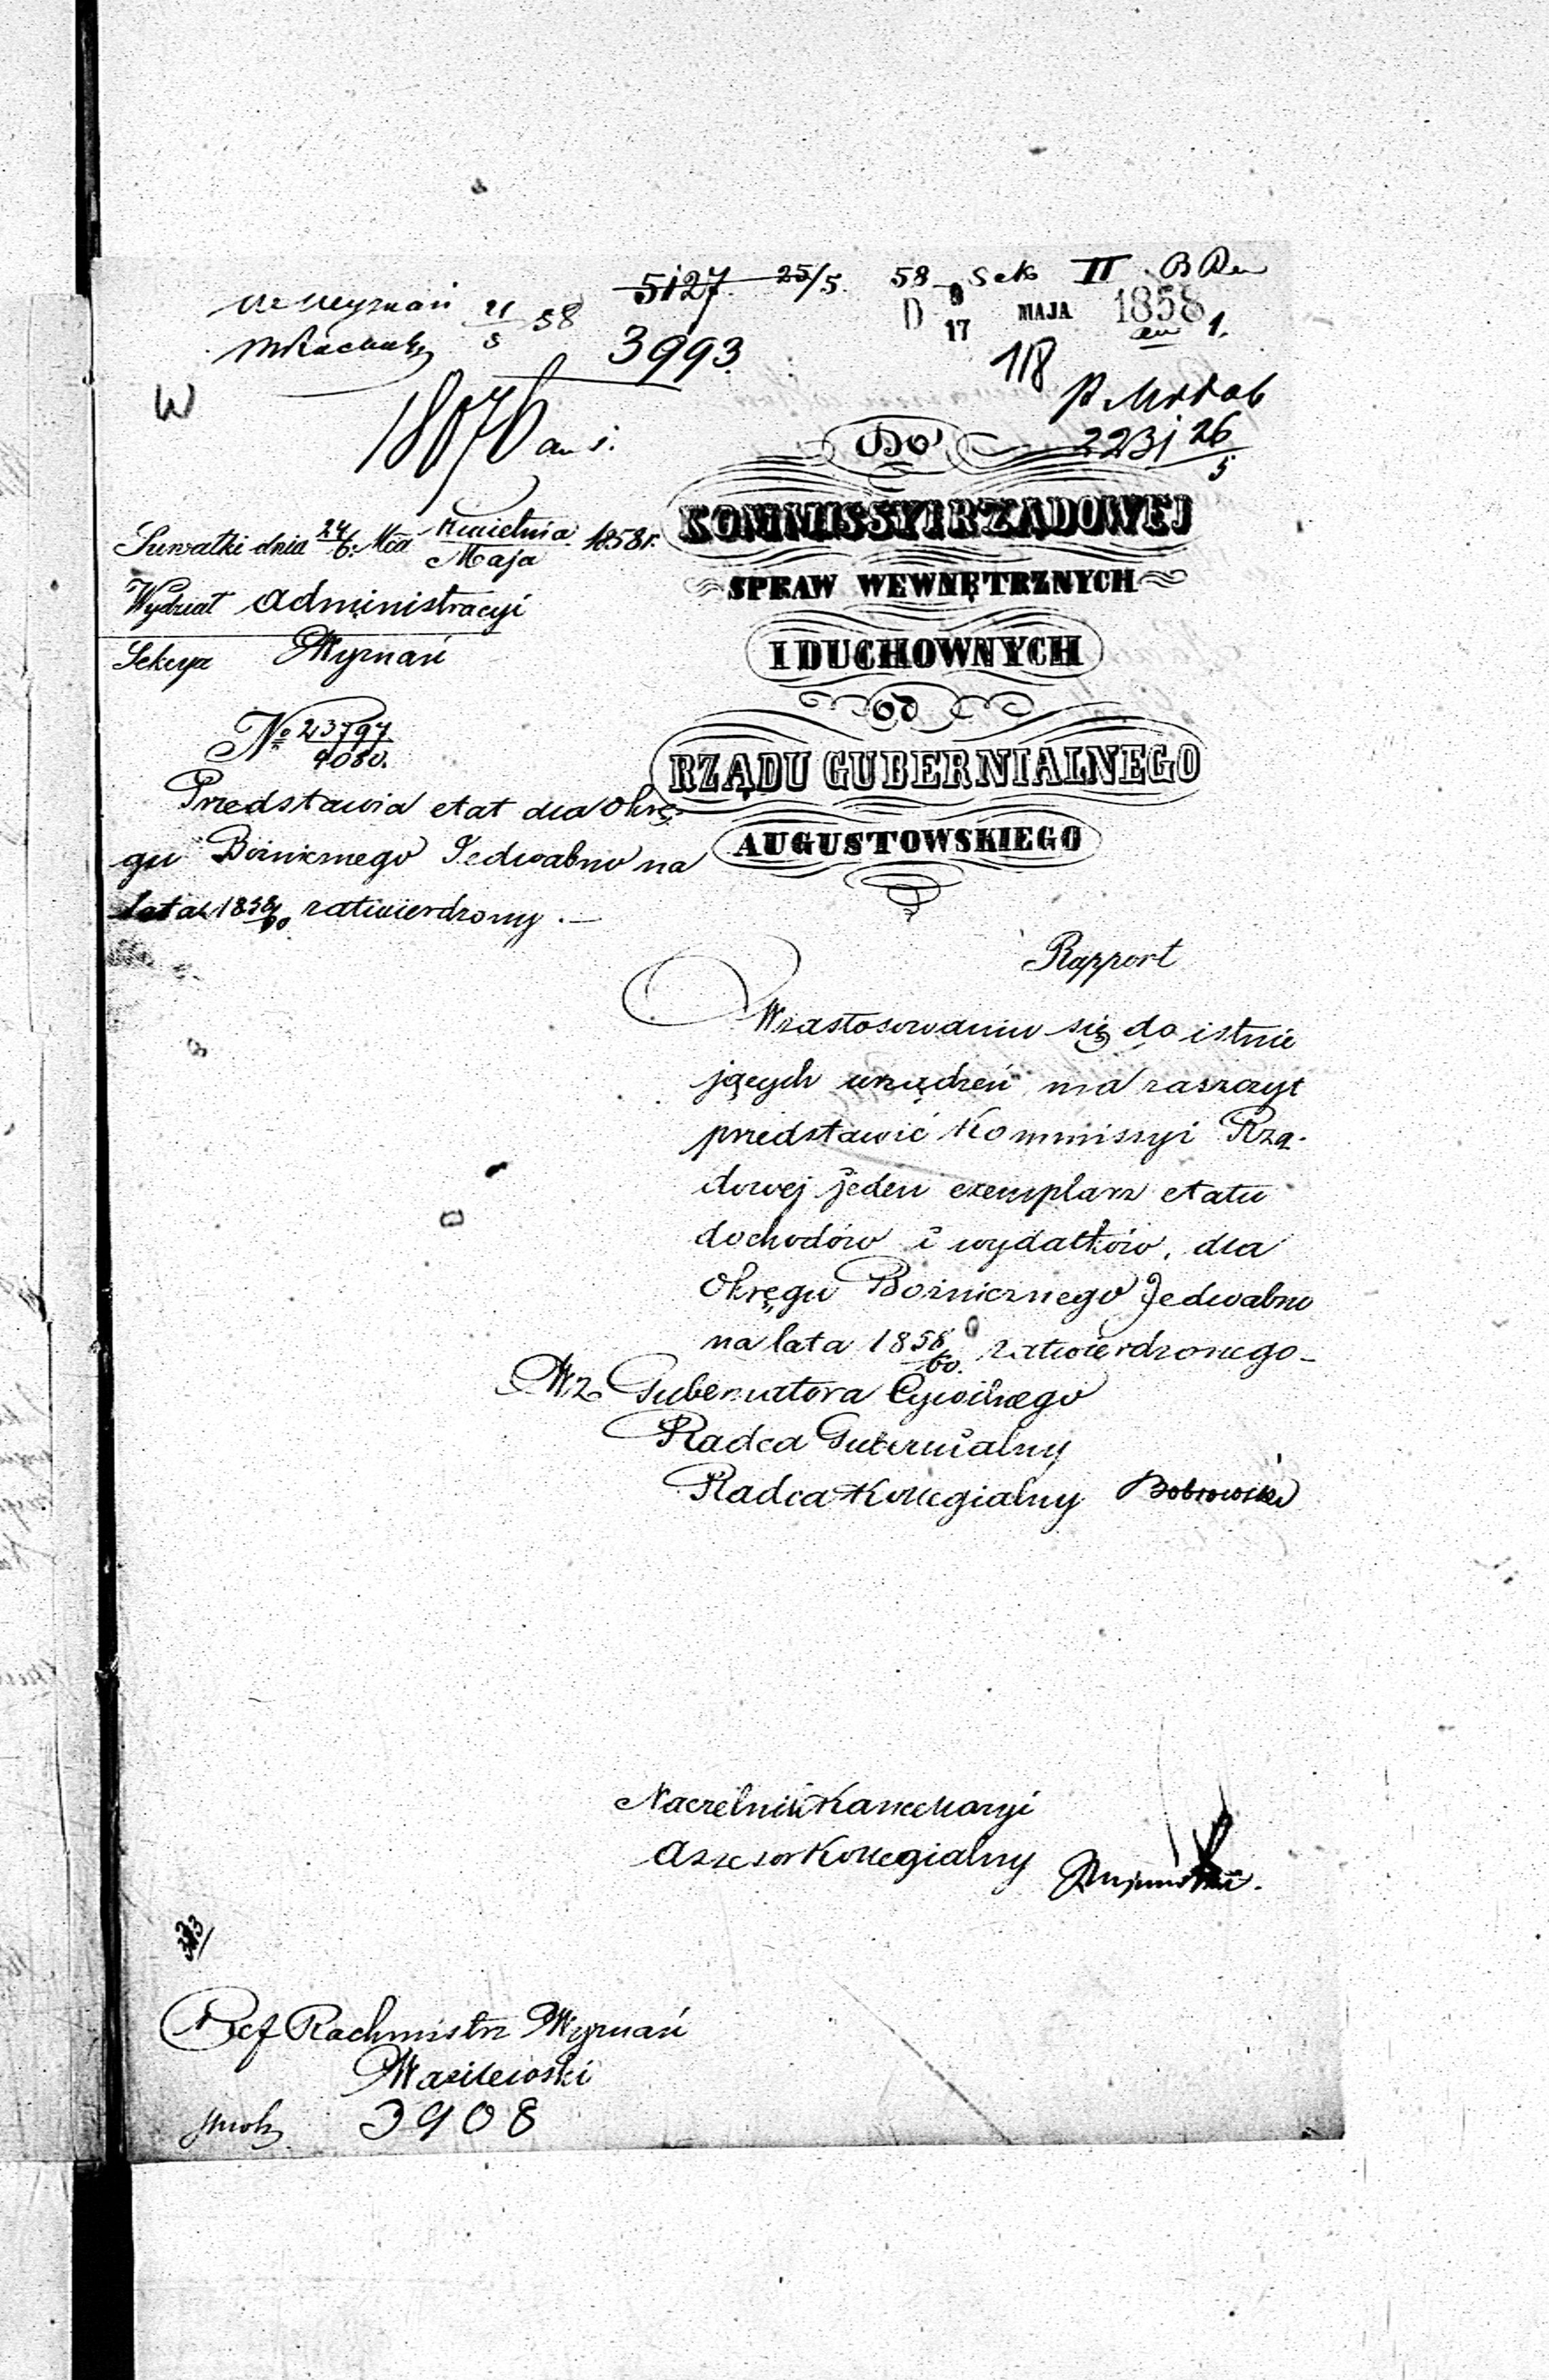 5127. 25/5. 58 Sek II
Wyznań 21/5 58
D 9/17 MAJA 1858
3993.
118
W
18076
2231 26/5
Do
KOMMISSYI RZĄDOWEJ
SPRAW WEWNĘTRZNYCH
I DUCHOWNYCH
od
RZĄDU GUBERNIALNEGO
AUGUSTOWSKIEGO
Suwałki dnia 24/6. Mca Kwietnia/Maja 1858 r.
Wydział Administracyi
Sekcya Wyznań
№ 23797/9080.
Przedstawia etat dla Okrę-
gu Bóżnicznego Jedwabno na
lata 1858/60 zatwierdzony.—
Rapport
W zastosowaniu się do istnie
jących urządzeń ma zaszczyt
przedstawić Kommissyi Rzą-
dowej jeden exemplarz etatu
dochodów i wydatków, dla
Okręgu Bożnicznego Jedwabno
na lata 1858/60. zatwierdzonego—
Wz. Gubernatora Cywilnego
Radca Gubernialny
Radca Kollegialny Bobrowski
Naczelnik Kancellaryi
Assesor Kollegialny
Ref Rachmistrz Wyznań
Wasilewski
3908